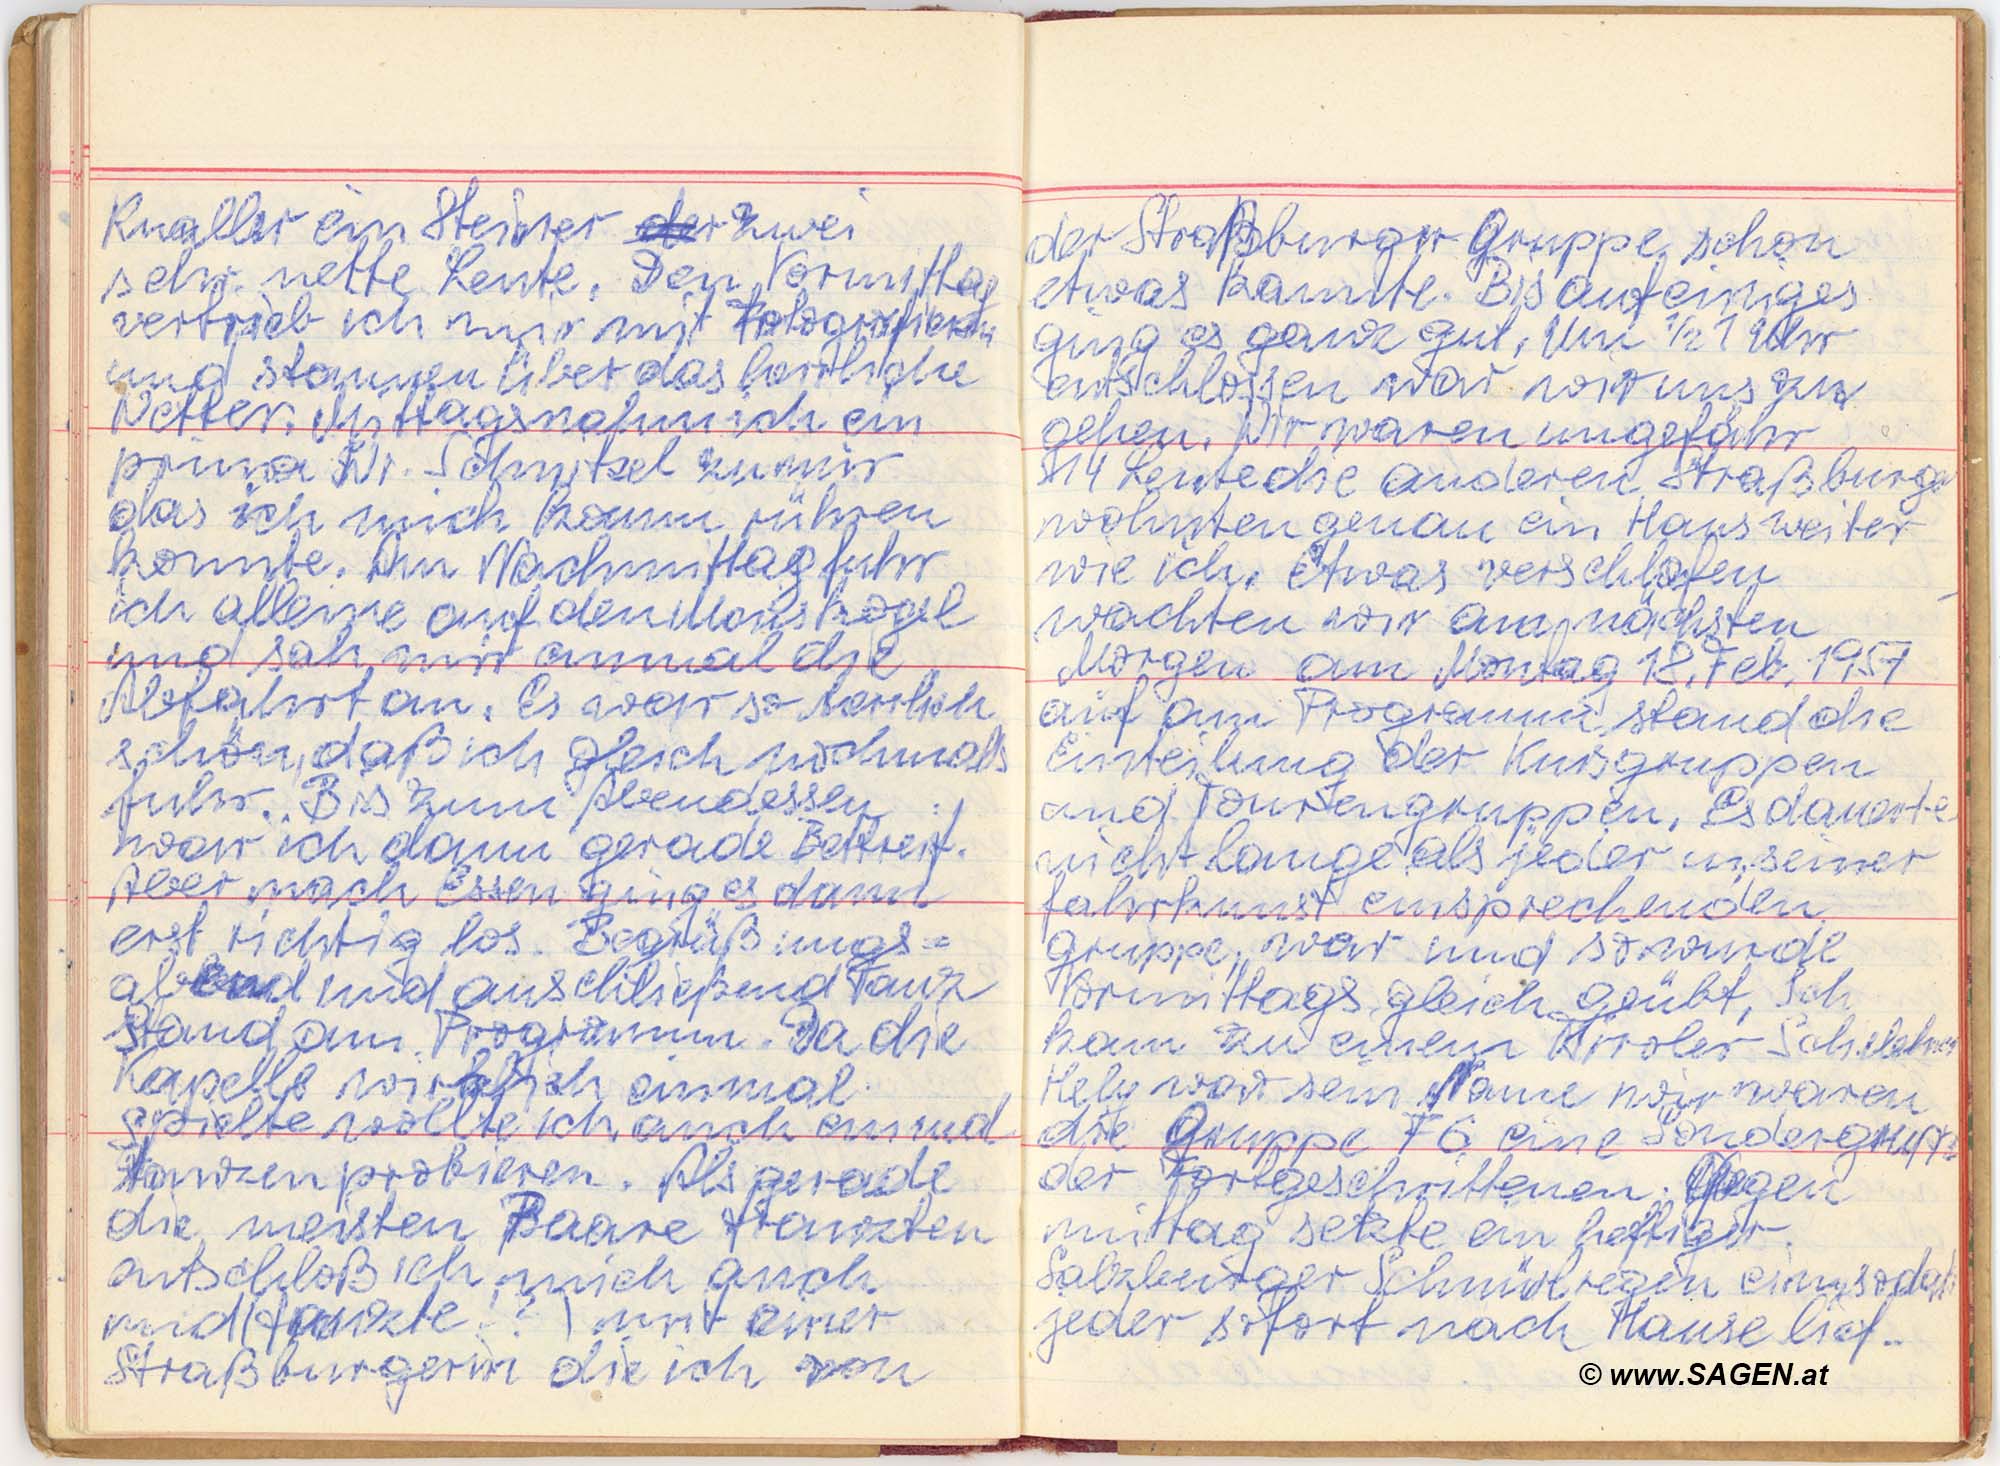 Knaller ein Steirer der zwei
sehr nette Leute. Den Vormittag
vertrieb ich mir mit Fotografieren
und staunen über das herrliche
Wetter. Mittags nahm ich ein
prima Wr. Schnitzel zu mir
das ich mich kaum rühren
konnte. Am Nachmittag fuhr
ich alleine auf den Monskogel
und sah mir einmal die
Abfahrt an. Es war so herrlich
schön, daß ich gleich nochmals
fuhr. Bis zum Abendessen
war ich dann gerade
Aber nach Essen ging es dann
erst richtig los. Begrüßungs=
abend und anschließend Tanz
stand am Programm. Da die
Kapelle wirklich einmal
spielte wollte ich auch einmal
tanzen probieren. Als gerade
die meisten Paare tanzten
entschloß ich mich auch
und tanzte (?) mit einer
Straßburgerin die ich von
der Straßburger Gruppe schon
etwas kannte. Bis auf einiges
ging es ganz gut. Um 1/2 1 Uhr
entschlossen war wir uns zu
gehen. Wir waren ungefähr
14 Leute die anderen Straßburger
wohnten genau ein Haus weiter
wie ich. Etwas verschlafen
wachten wir am nächsten
Morgen am Montag 18. Feb. 1957
auf am Programm stand die
Einteilung der Kursgruppen
und Tourengruppen. Es dauerte
nicht lange als jeder in seiner
fahrkunst einsprechenden
gruppe, war und so wurde
Vormittags gleich geübt, Ich
kam zu einem Tiroler Schilehrer
Hely war sein Name wir waren
die Gruppe F6 eine Sondergruppe
der Fortgeschrittenen. Gegen
mittag setzte ein heftiger
Salzburger Schnürlregen ein, sodaß
jeder sofort nach Hause lief.
© www.SAGEN.at